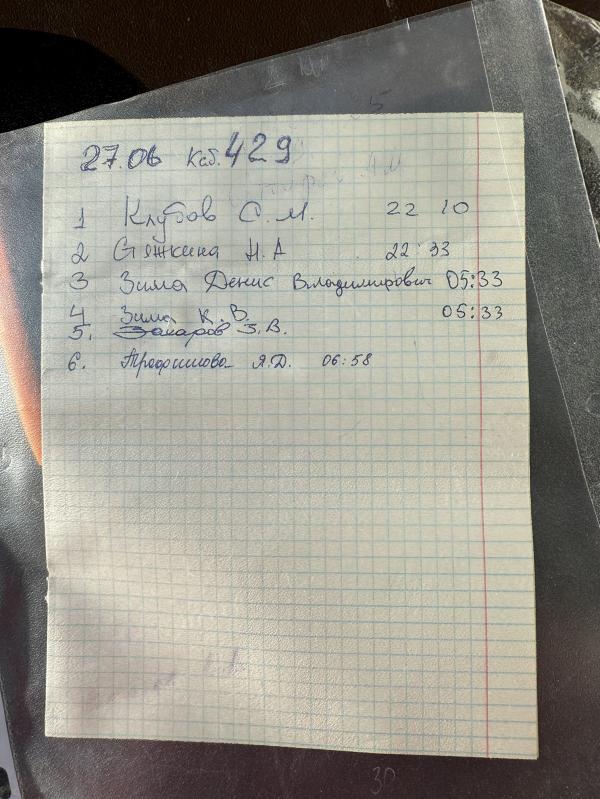 27.06 Каб. 429
1 Клубов С. М. 22 10
2 Стяжкина Н. А 22 33
3 Зима Денис Владимирович 05:33
4 Зима К. В. 05:33
5. Захаров З. В.
6. Трофимова Я.Д. 06:58
30